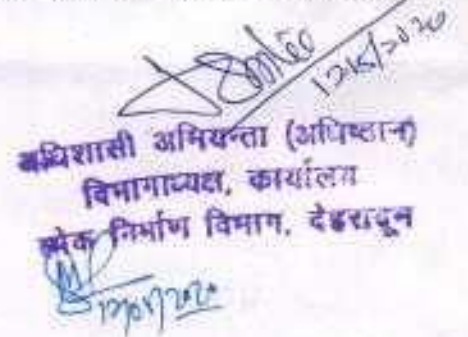 12/5/2020
अधिशासी अभियन्ता (अधिष्ठान)
विभागाध्यक्ष, कार्यालय
लोक निर्माण विभाग, देहरादून